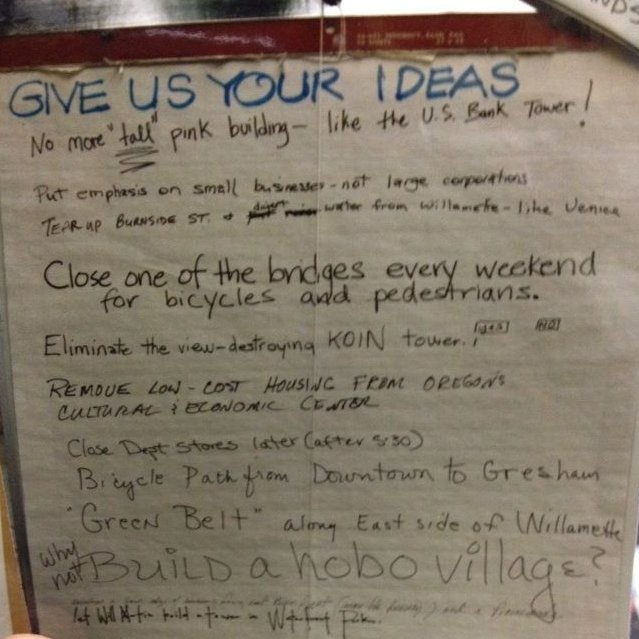 GIVE US YOUR IDEAS
No more "tall" pink building - like the U.S. Bank Tower!
Put emphasis on small businesses - not large corporations
TEAR UP BURNSIDE ST. & divert water from Willamette - like Venice
Close one of the bridges every weekend
for bicycles and pedestrians.
Eliminate the view-destroying KOIN tower. yes NO
REMOVE LOW-COST HOUSING FROM OREGON'S
CULTURAL & ECONOMIC CENTER
Close Dept stores later (after 5:30)
Bicycle Path from Downtown to Gresham
"Green Belt" along East side of Willamette
why not BUILD a hobo village?
Let Will build tower in Waterfront Park.